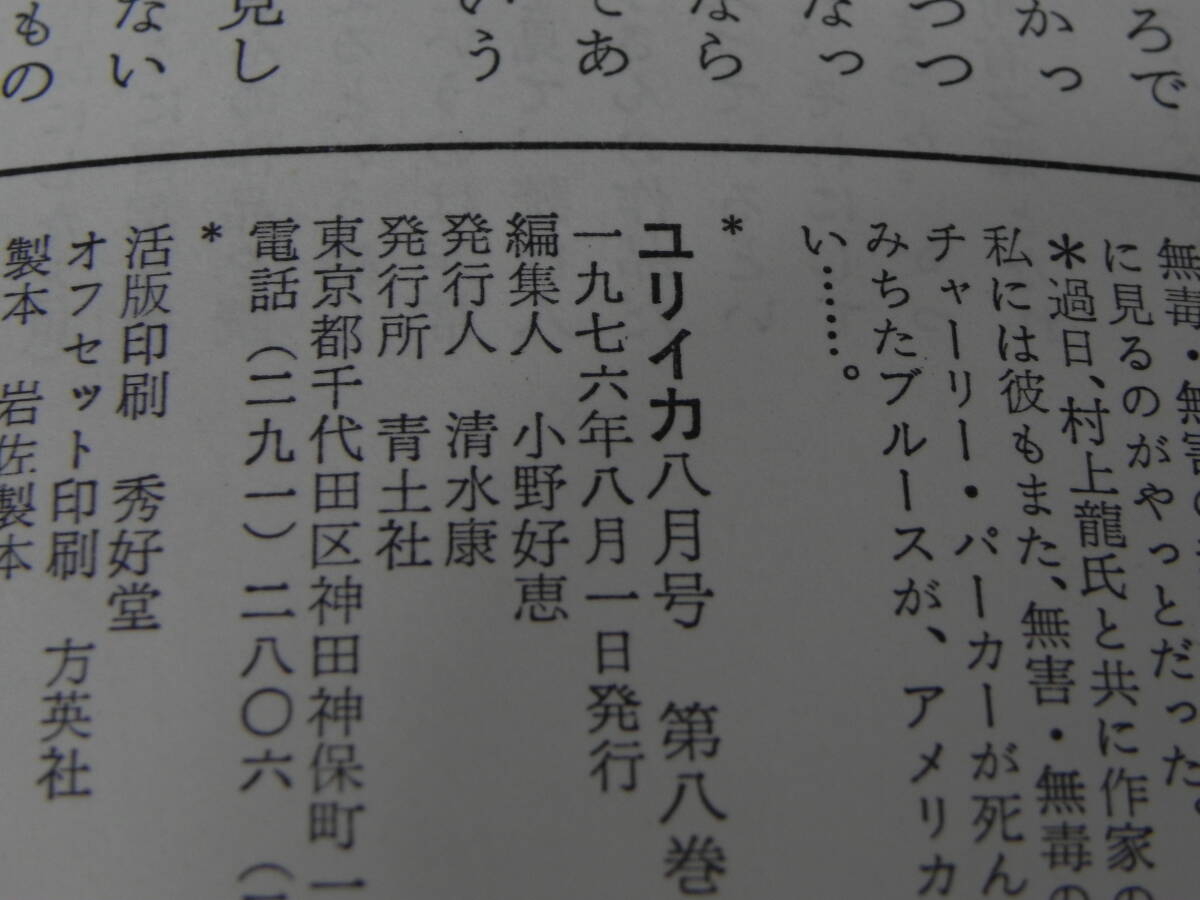 ろで
かっ
つつ
なっ
なら
であ
いう
見し
ない
もの
無毒・無害の
に見るのがやっとだった。
＊過日、村上龍氏と共に作家の
私には彼もまた、無害・無毒の
チャーリー・パーカーが死ん
みちたブルースが、アメリカ
い……。
＊
ユリイカ八月号 第八巻
一九七六年八月一日発行
編集人 小野好恵
発行人 清水康
発行所 青土社
東京都千代田区神田神保町一
電話（二九一）二八〇六（
＊
活版印刷 秀好堂
オフセット印刷 方英社
製本 岩佐製本